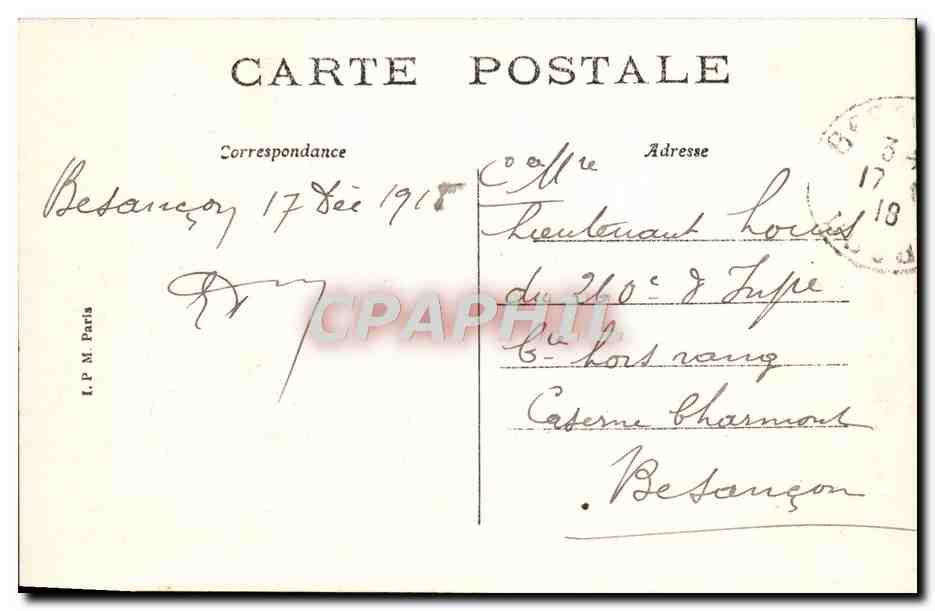 CARTE POSTALE
Correspondance
Adresse
Besançon 17 Déc 1918
Lieutenant Louis
du 260e d'Infie
Cie hors rang
Caserne Charmont
Besançon
I. P M. Paris
CPAPHIL
3
17
18